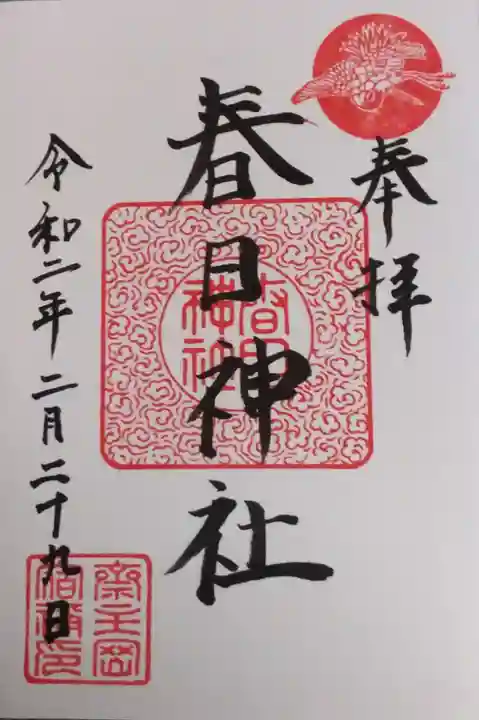 奉拝
春日神社
春日神社
令和二年二月二十九日